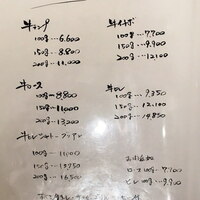 牛ランプ
100g…6.600
150g…8.800
200g…11.000
牛イチボ
100g…7.700
150g…9.900
200g…12.100
牛ロース
100g…8.800
150g…11.000
200g…13.200
牛ヒレ
100g…9.350
150g…12.100
200g…14.850
牛ヒレシャトーブリアン
100g…11.000
150g…13.750
200g…16.500
お肉追加
ロース100g…7.700
ヒレ100g…9.900